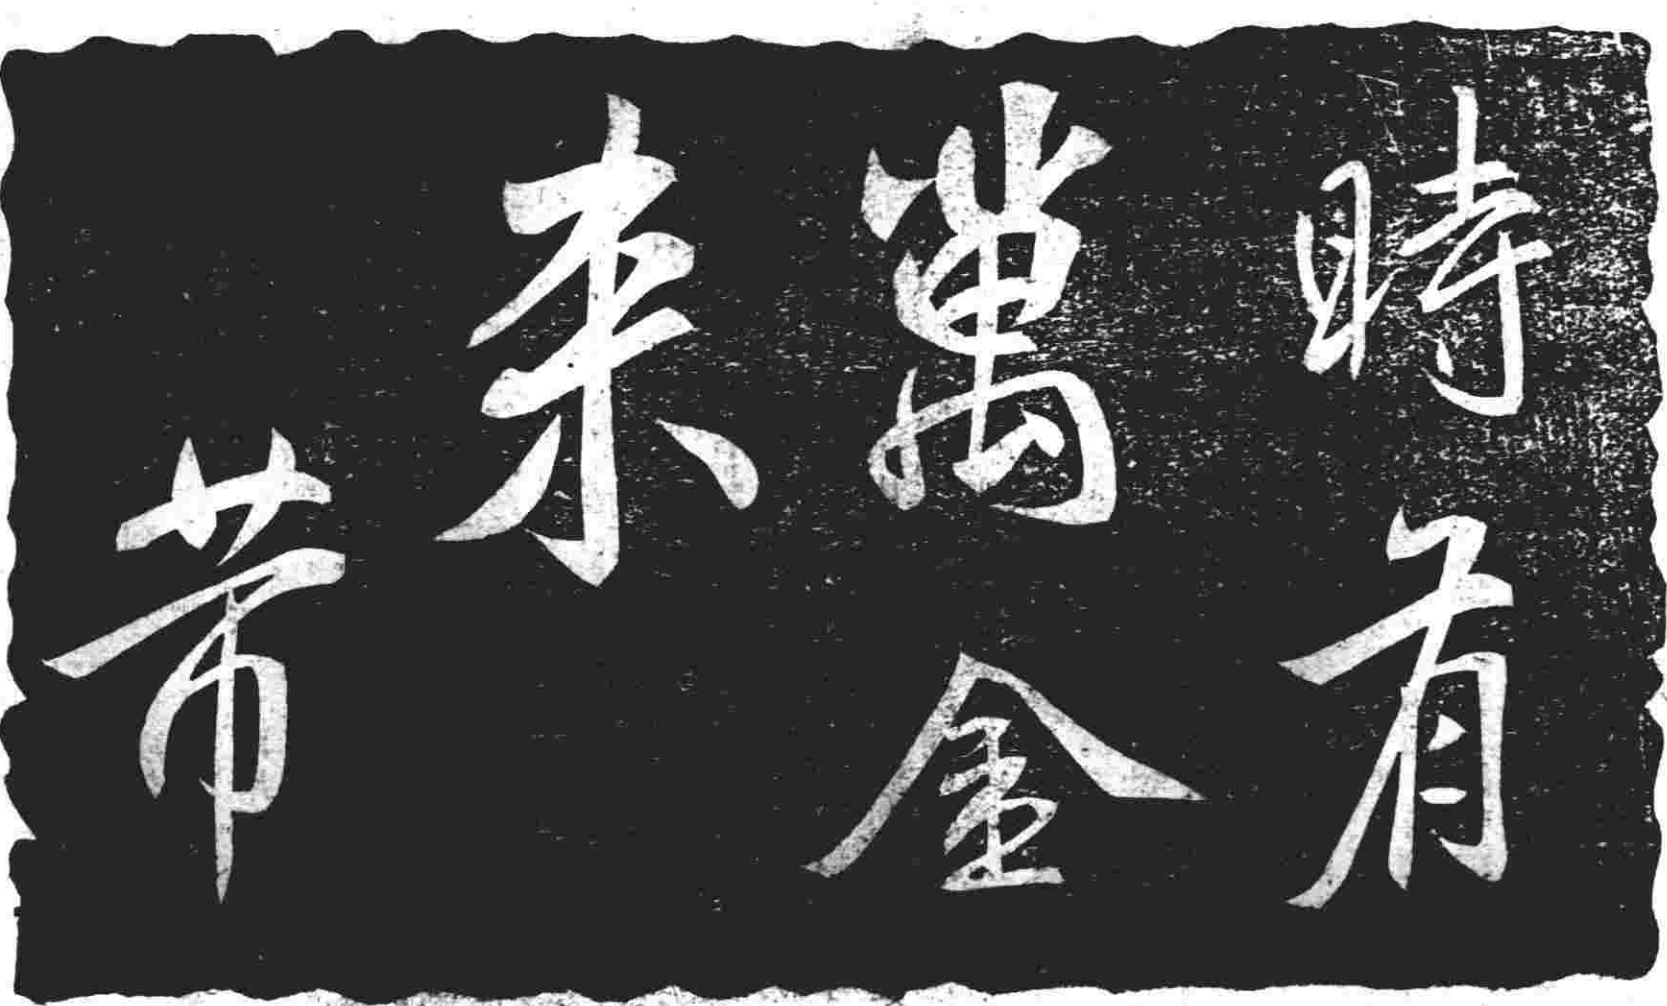 時有
萬金
来
芾